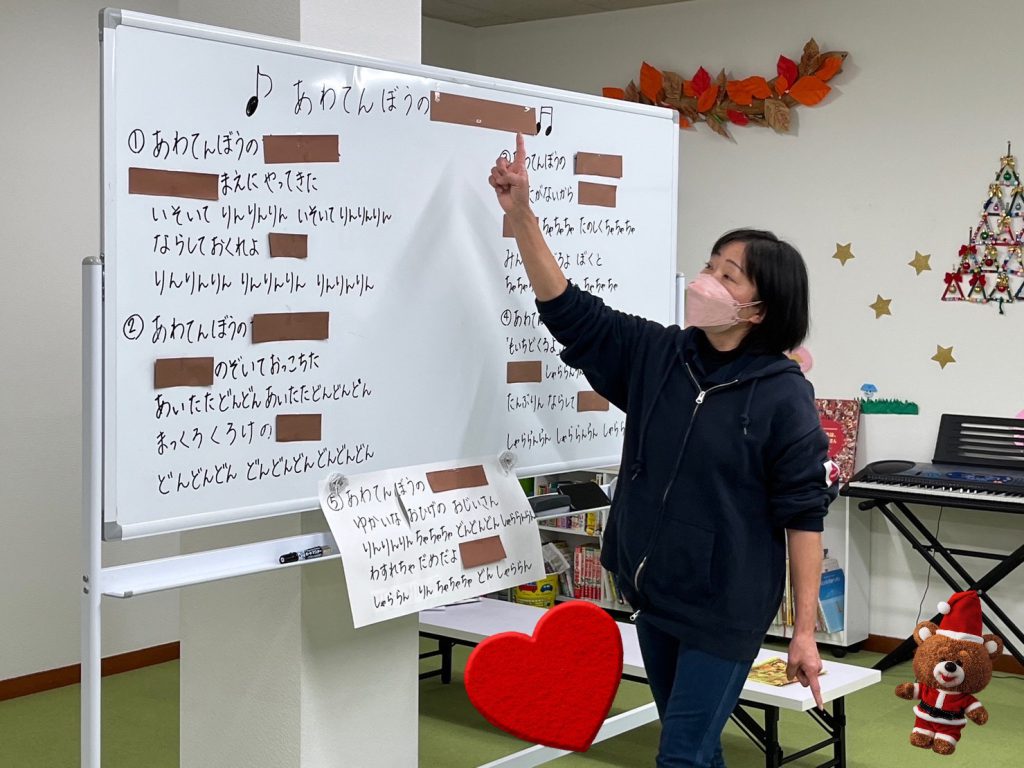 あわてんぼうの
① あわてんぼうの
まえに やってきた
いそいで りんりんりん いそいで りんりんりん
ならしておくれよ
りんりんりん りんりんりん りんりんりん
② あわてんぼうの
のぞいて おっこちた
あいたたどんどんどん あいたたどんどんどん
まっくろくろけの
どんどんどん どんどんどんどんどんどん
わてんぼうの
たがないから
ちゃちゃちゃ たのしくちゃちゃちゃ
みん るよ ぼくと
ちゃちゃ ちゃちゃちゃ
④ あわてん
もいちどくるよ
しゃららん
たんぶりん ならして
しゃららんらん しゃららんらん しゃら
⑤ あわてんぼうの
ゆかいな おひげの おじいさん
りんりんりん ちゃちゃちゃ どんどんどん しゃららんらん
わすれちゃ だめだよ
しゃららん りん ちゃちゃちゃ どん しゃららん